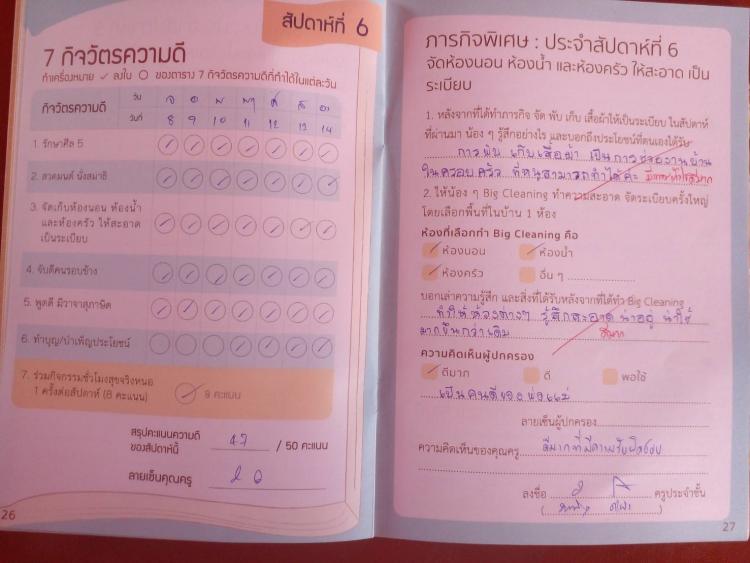 สัปดาห์ที่ 6
7 กิจวัตรความดี
ทำเครื่องหมาย ✓ ลงใน ○ ของตาราง 7 กิจวัตรความดีที่ทำได้ในแต่ละวัน
กิจวัตรความดี
วัน จ อ พ พฤ ศ ส อา
วันที่ 8 9 10 11 12 13 14
1. รักษาศีล 5
2. สวดมนต์ นั่งสมาธิ
3. จัดเก็บห้องนอน ห้องน้ำ
และห้องครัว ให้สะอาด
เป็นระเบียบ
4. จับดีคนรอบข้าง
5. พูดดี มีวาจาสุภาษิต
6. ทำบุญ/บำเพ็ญประโยชน์
7. ร่วมกิจกรรมชั่วโมงสุขจริงหนอ
1 ครั้งต่อสัปดาห์ (8 คะแนน)
8 คะแนน
สรุปคะแนนความดี
ของสัปดาห์นี้ 47 / 50 คะแนน
ลายเซ็นคุณครู
26
ภารกิจพิเศษ : ประจำสัปดาห์ที่ 6
จัดห้องนอน ห้องน้ำ และห้องครัว ให้สะอาด เป็น
ระเบียบ
1. หลังจากที่ได้ทำภารกิจ จัด พับ เก็บ เสื้อผ้าให้เป็นระเบียบ ในสัปดาห์
ที่ผ่านมา น้อง ๆ รู้สึกอย่างไร และบอกถึงประโยชน์ที่ตนเองได้รับ
การพับ เก็บเสื้อผ้า เป็นการช่วยงานบ้าน
ในครอบครัว ที่หนูสามารถทำได้ค่ะ
2. ให้น้อง ๆ Big Cleaning ทำความสะอาด จัดระเบียบครั้งใหญ่
โดยเลือกพื้นที่ในบ้าน 1 ห้อง
ห้องที่เลือกทำ Big Cleaning คือ
ห้องนอน ห้องน้ำ
ห้องครัว อื่น ๆ
บอกเล่าความรู้สึก และสิ่งที่ได้รับหลังจากที่ได้ทำ Big Cleaning
ทำให้ห้องต่างๆ รู้สึกสะอาด น่าอยู่ น่าใช้
มากขึ้นกว่าเดิม
ความคิดเห็นผู้ปกครอง
ดีมาก ดี พอใช้
เป็นคนดีของพ่อแม่
ลายเซ็นผู้ปกครอง
ความคิดเห็นของคุณครู ดีมากที่มีความรับผิดชอบ
ลงชื่อ ครูประจำชั้น
27